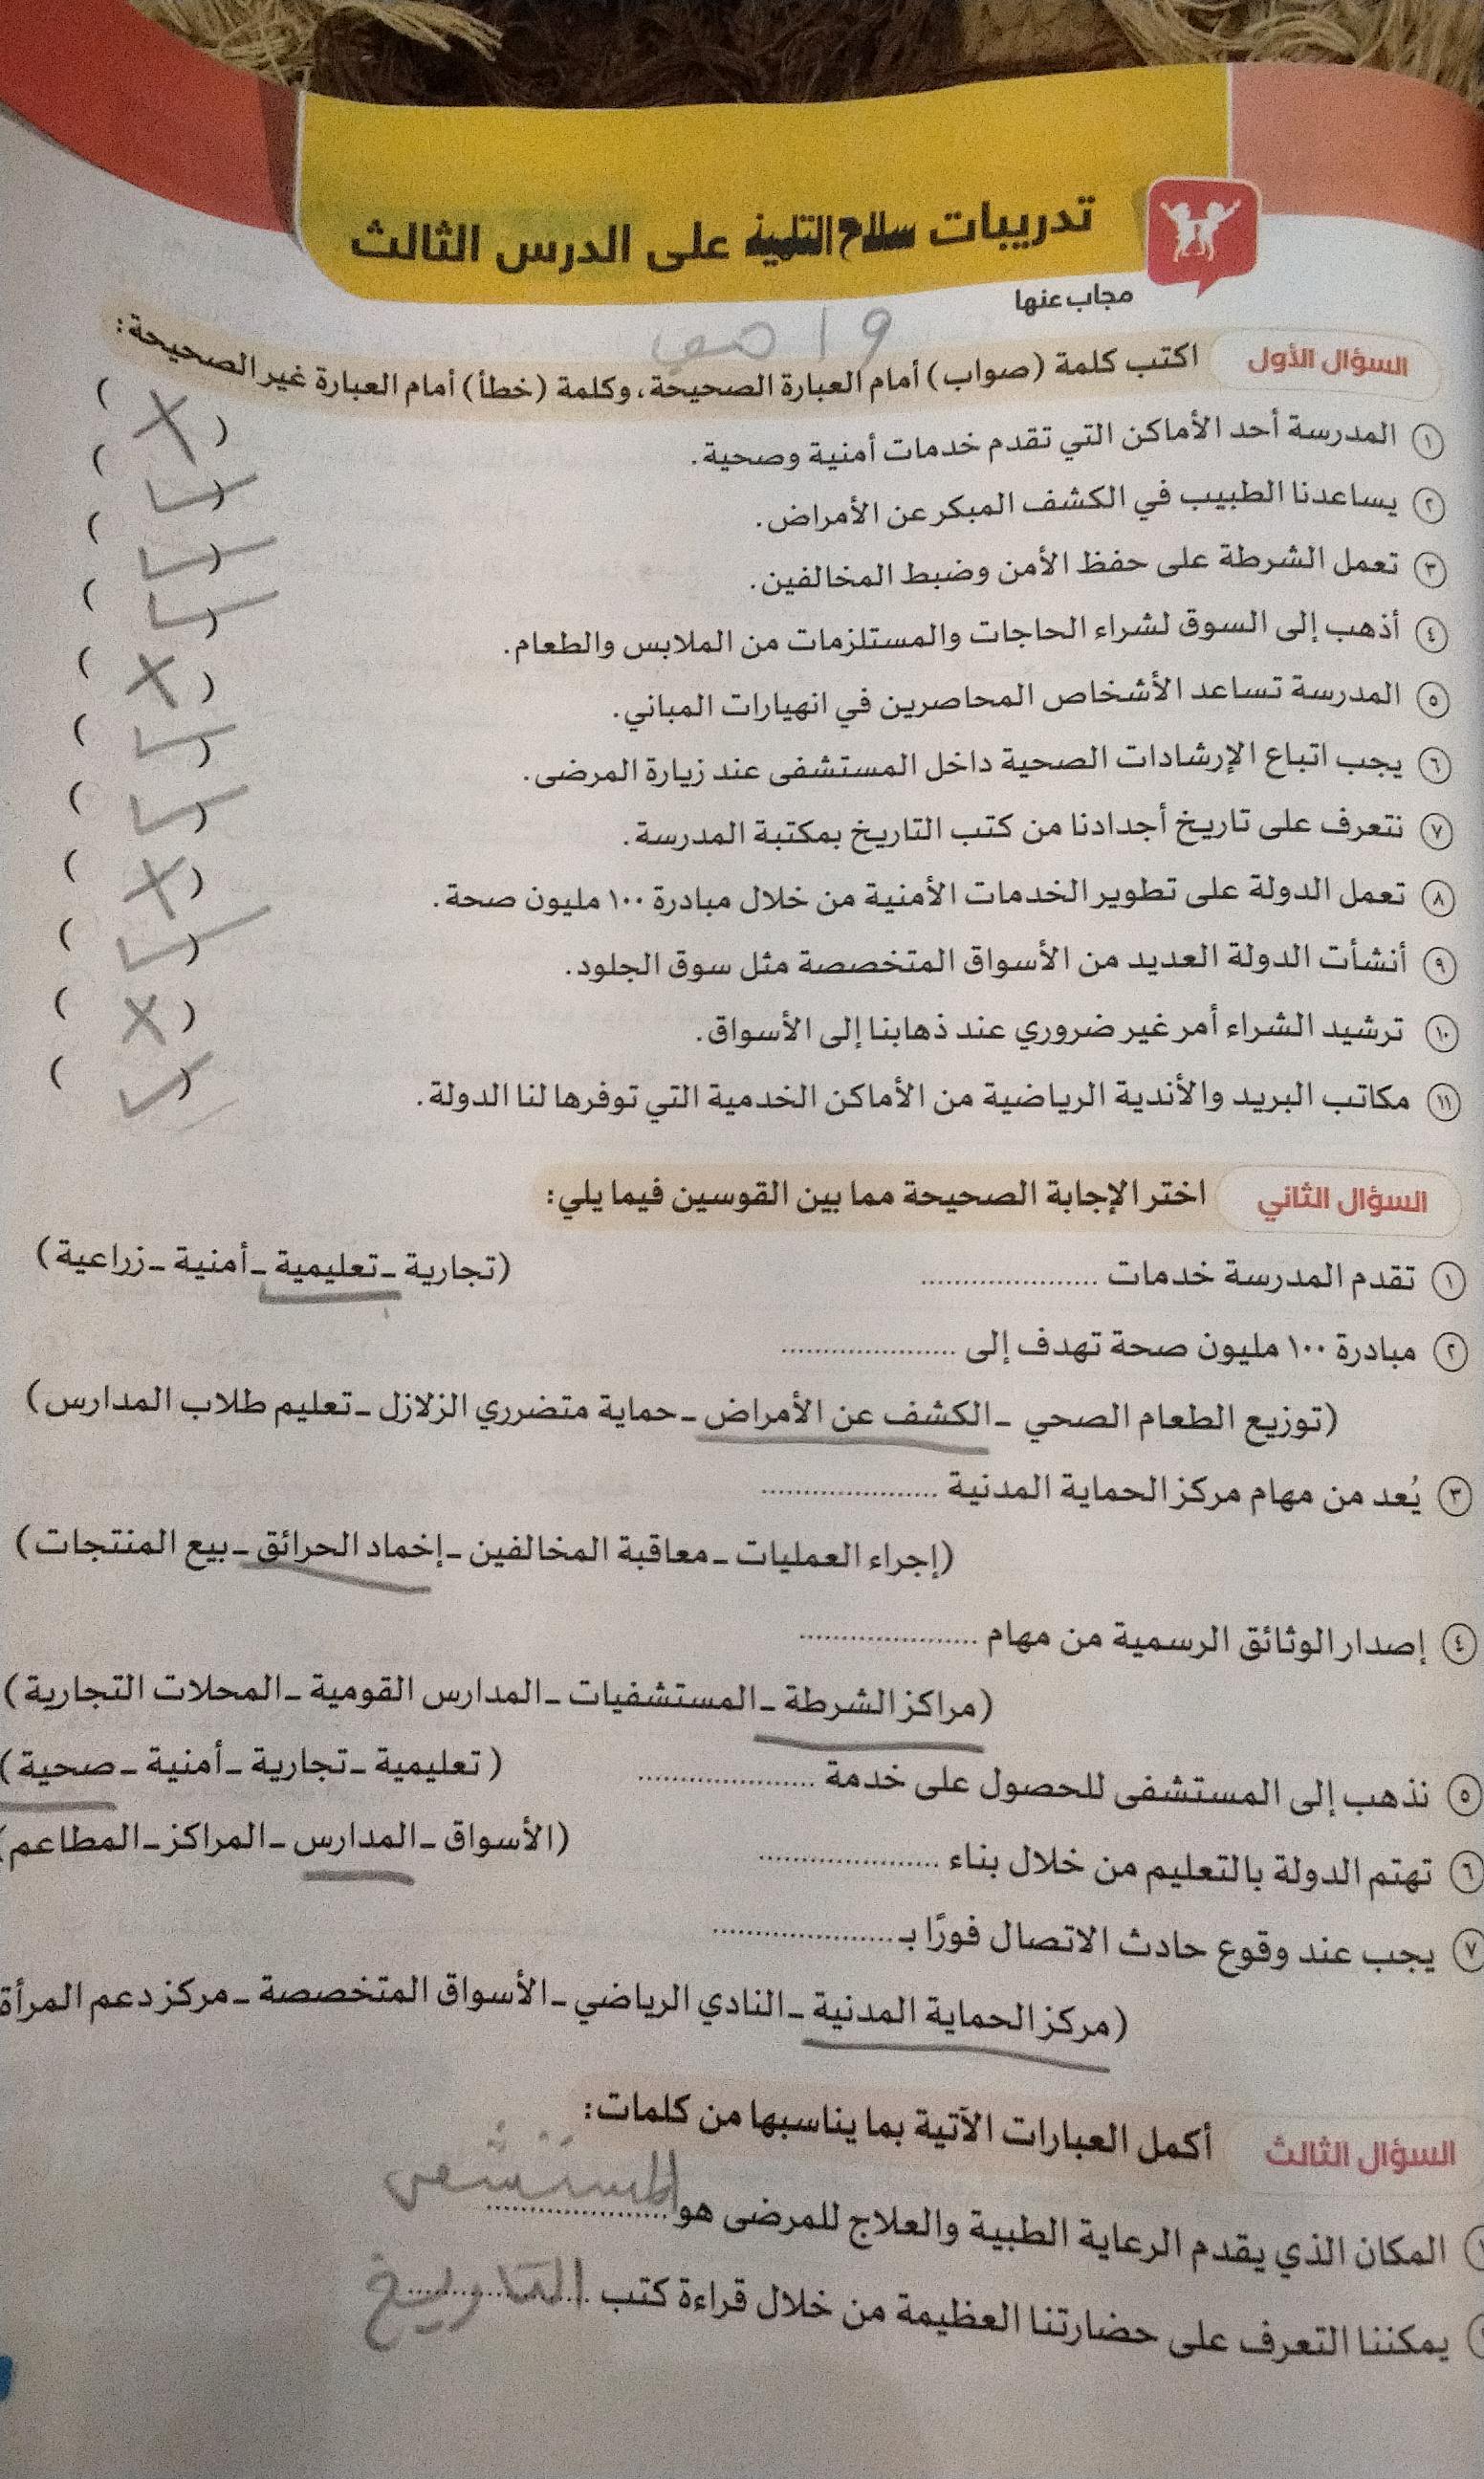 تدريبات سلاح التلميذ على الدرس الثالث
مجاب عنها
9 | صـ
السؤال الأول اكتب كلمة (صواب) أمام العبارة الصحيحة، وكلمة (خطأ) أمام العبارة غير الصحيحة:
١ المدرسة أحد الأماكن التي تقدم خدمات أمنية وصحية. (X)
٢ يساعدنا الطبيب في الكشف المبكر عن الأمراض. (✓)
٣ تعمل الشرطة على حفظ الأمن وضبط المخالفين. (✓)
٤ أذهب إلى السوق لشراء الحاجات والمستلزمات من الملابس والطعام. (✓)
٥ المدرسة تساعد الأشخاص المحاصرين في انهيارات المباني. (X)
٦ يجب اتباع الإرشادات الصحية داخل المستشفى عند زيارة المرضى. (✓)
٧ نتعرف على تاريخ أجدادنا من كتب التاريخ بمكتبة المدرسة. (✓)
٨ تعمل الدولة على تطوير الخدمات الأمنية من خلال مبادرة ١٠٠ مليون صحة. (X)
٩ أنشأت الدولة العديد من الأسواق المتخصصة مثل سوق الجلود. (✓)
١٠ ترشيد الشراء أمر غير ضروري عند ذهابنا إلى الأسواق. (X)
١١ مكاتب البريد والأندية الرياضية من الأماكن الخدمية التي توفرها لنا الدولة. (✓)
السؤال الثاني اختر الإجابة الصحيحة مما بين القوسين فيما يلي:
١ تقدم المدرسة خدمات .................... (تجارية - تعليمية - أمنية - زراعية)
٢ مبادرة ١٠٠ مليون صحة تهدف إلى ....................
(توزيع الطعام الصحي - الكشف عن الأمراض - حماية متضرري الزلازل - تعليم طلاب المدارس)
٣ يُعد من مهام مركز الحماية المدنية ....................
(إجراء العمليات - معاقبة المخالفين - إخماد الحرائق - بيع المنتجات)
٤ إصدار الوثائق الرسمية من مهام ....................
(مراكز الشرطة - المستشفيات - المدارس القومية - المحلات التجارية)
٥ نذهب إلى المستشفى للحصول على خدمة .................... (تعليمية - تجارية - أمنية - صحية)
٦ تهتم الدولة بالتعليم من خلال بناء .................... (الأسواق - المدارس - المراكز - المطاعم)
٧ يجب عند وقوع حادث الاتصال فورًا بـ ....................
(مركز الحماية المدنية - النادي الرياضي - الأسواق المتخصصة - مركز دعم المرأة
السؤال الثالث أكمل العبارات الآتية بما يناسبها من كلمات:
المكان الذي يقدم الرعاية الطبية والعلاج للمرضى هو المستشفى
يمكننا التعرف على حضارتنا العظيمة من خلال قراءة كتب التاريخ